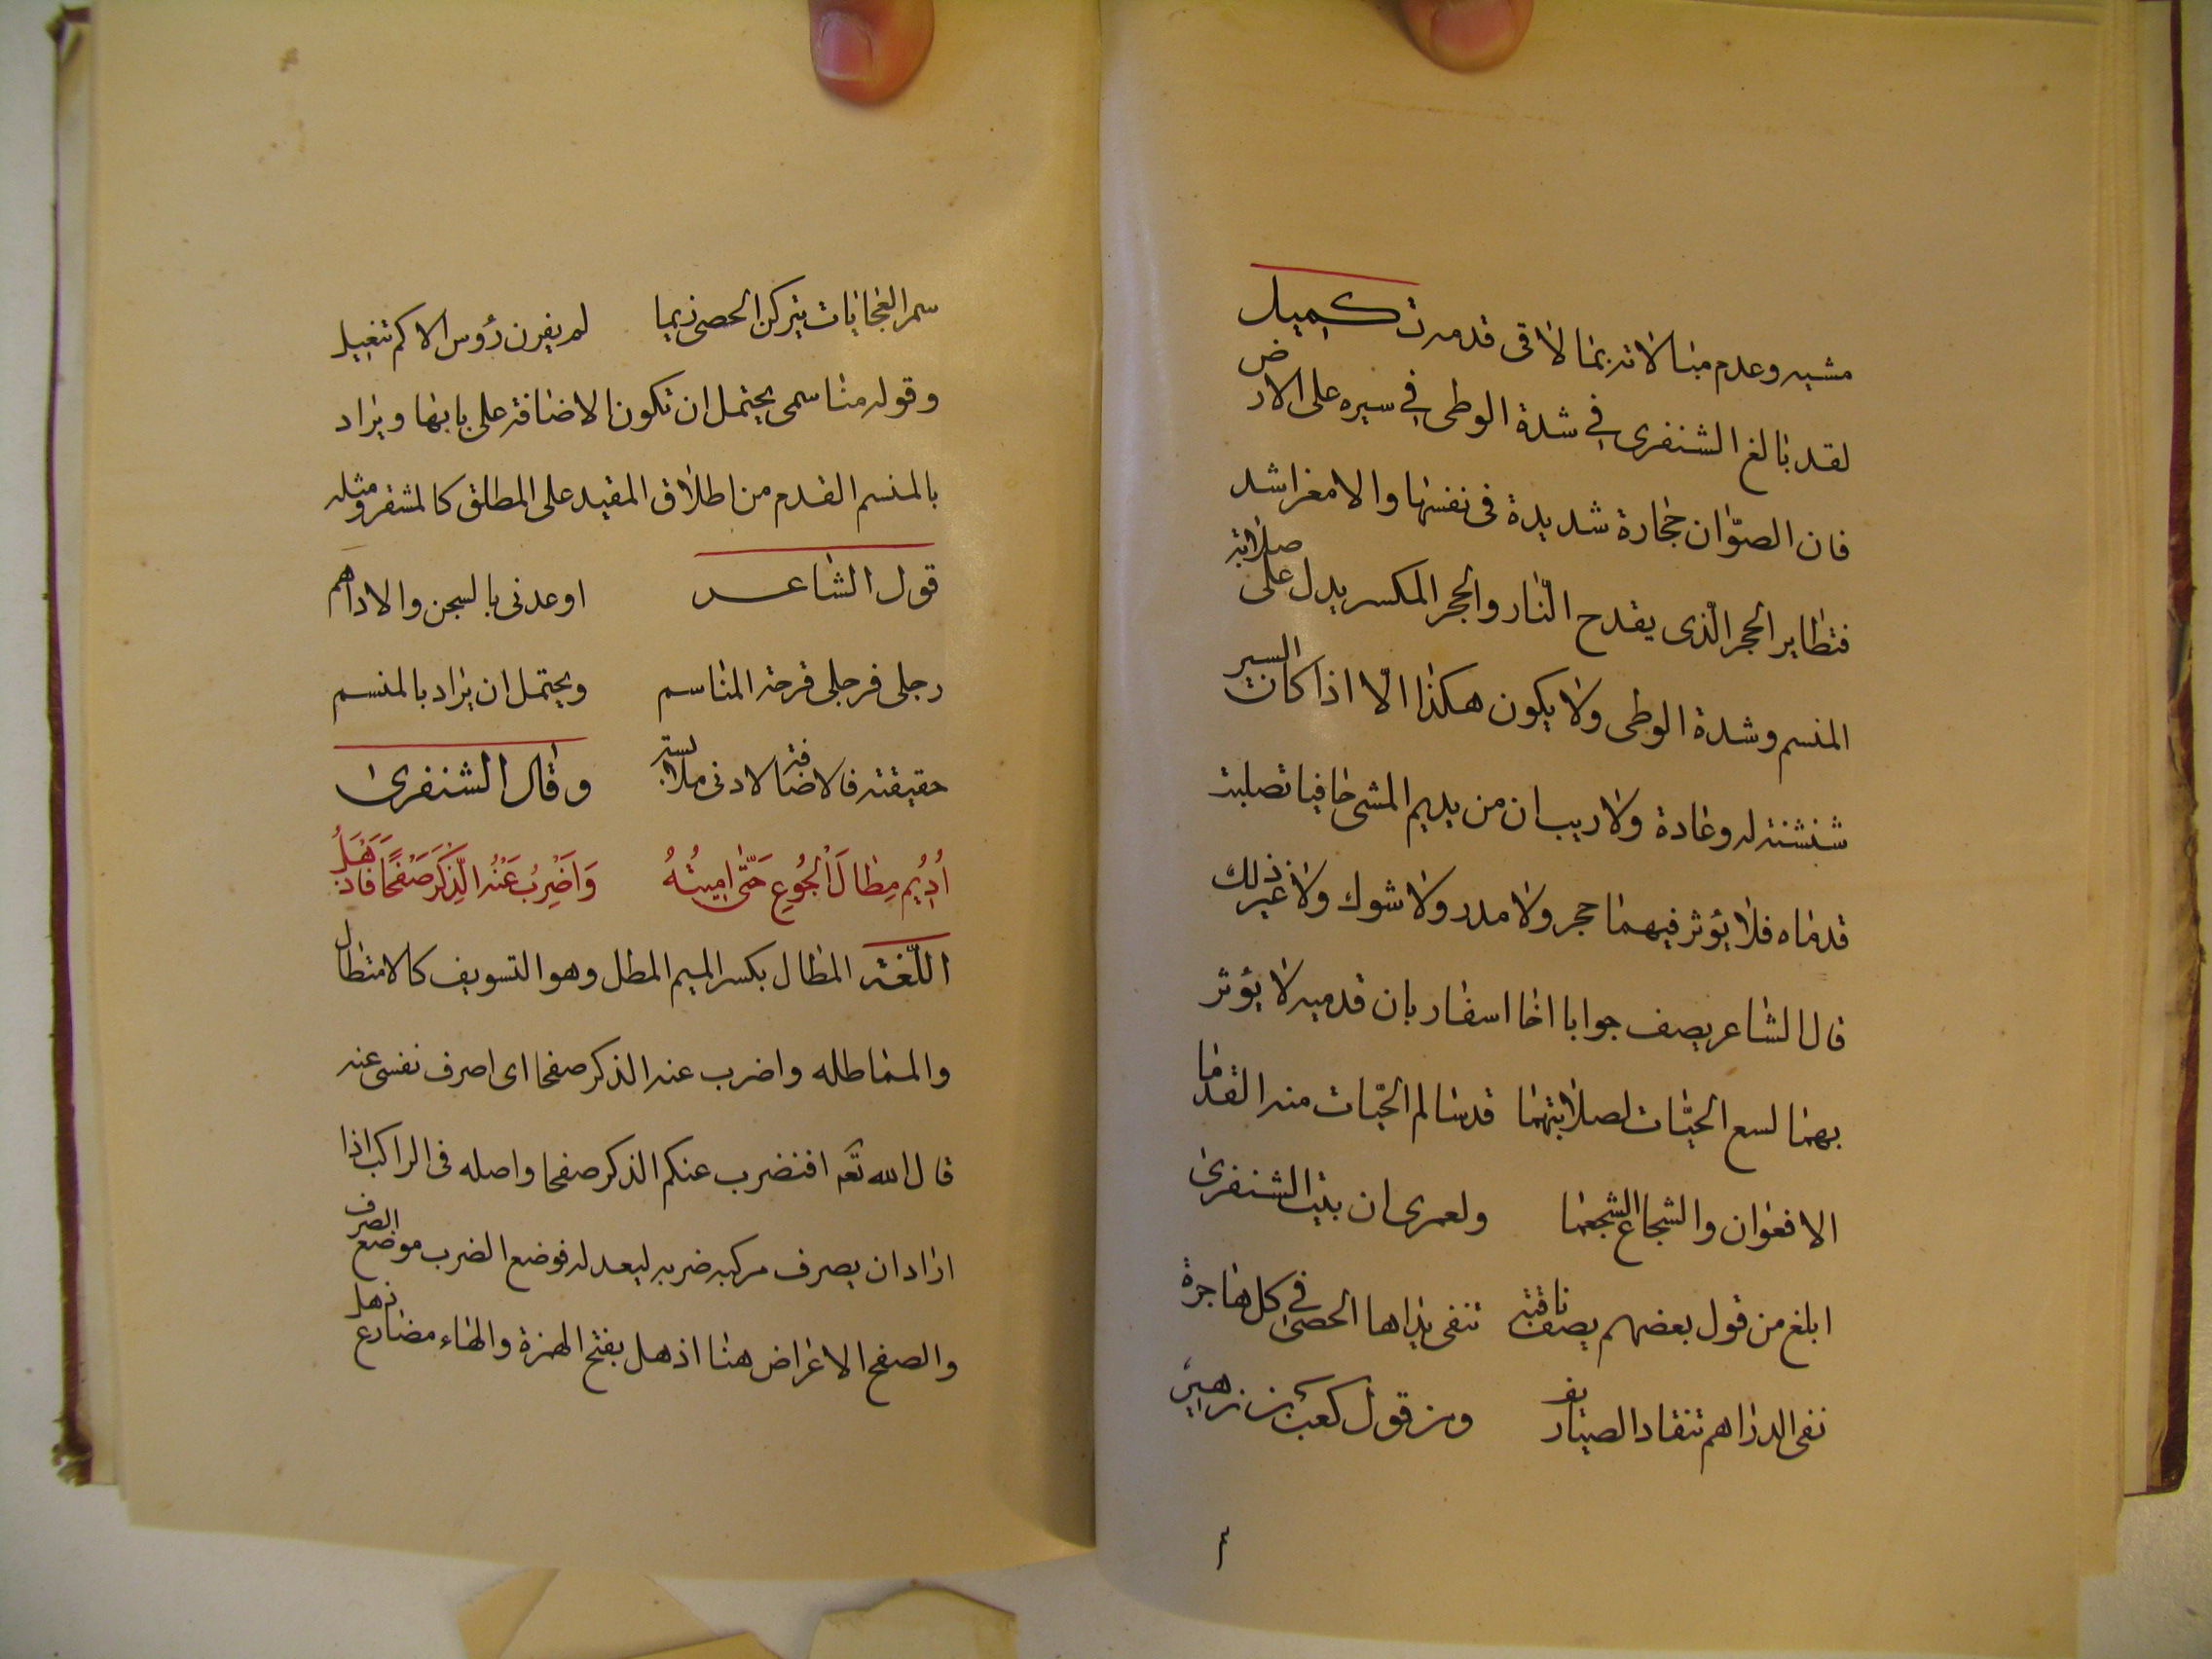 مشيه وعدم مبالاته بما لاقى قدمه تكميل
لقد بالغ الشنفرى في شدة الوطى في سيره على الارض
فان الصوّان حجارة شديدة فى نفسها والامغر اشد
فتطاير الحجر الّذى يقدح النّار والحجر المكسر يدل على صلابة
المنسم وشدة الوطى ولا يكون هكذا الّا اذا كان السير
شنشنة له وعادة ولا ريب ان من يديم المشى حافيا تصلبت
قدماه فلا يؤثر فيهما حجر ولا مدر ولا شوك ولا غير ذلك
قال الشاعر يصف جوابا اخا اسفار بان قدميه لا يؤثر
بهما لسع الحيّات لصلابتهما قد سالم الحيّات منه القدما
الافعوان والشجاع الشجعما ولعمرى ان بيت الشنفرى
ابلغ من قول بعضهم يصف ناقته تنفى يداها الحصى في كل هاجرة
نفى الدراهم تنقاد الصياريف ومن قول كعب بن زهير
٤
سمر العجايات يتركن الحصى زيما لم يقهن رؤس الاكم تنعيل
وقوله مناسمى يحتمل ان تكون الاضافة على بابها ويراد
بالمنسم القدم من اطلاق المقيد على المطلق كالمشفر ومثله
قول الشاعر اوعدنى بالسجن والاداهم
رجلى فرجلى قرحة المناسم ويحتمل ان يراد بالمنسم
حقيقته فالاضافة لادنى ملابسة وقال الشنفرى
أُدِيُم مِطالَ الْجُوعِ حَتّى اُمِيتُهُ وَاَضْرِبُ عَنْهُ الذِّكْرَ صَفْحًا فَاَذْهَلُ
اللّغة المطال بكسر الميم المطل وهو التسويف كالامتطال
والمماطله واضرب عنه الذكر صفحا اى اصرف نفسى عنه
قال الله تعه افنضرب عنكم الذكر صفحا واصله فى الراكب اذا
اراد ان يصرف مركبه ضربه ليعدله فوضع الضرب موضع الصرف
والصفح الاعراض هنا اذهل بفتح الهمزة والهاء مضارع ذهل